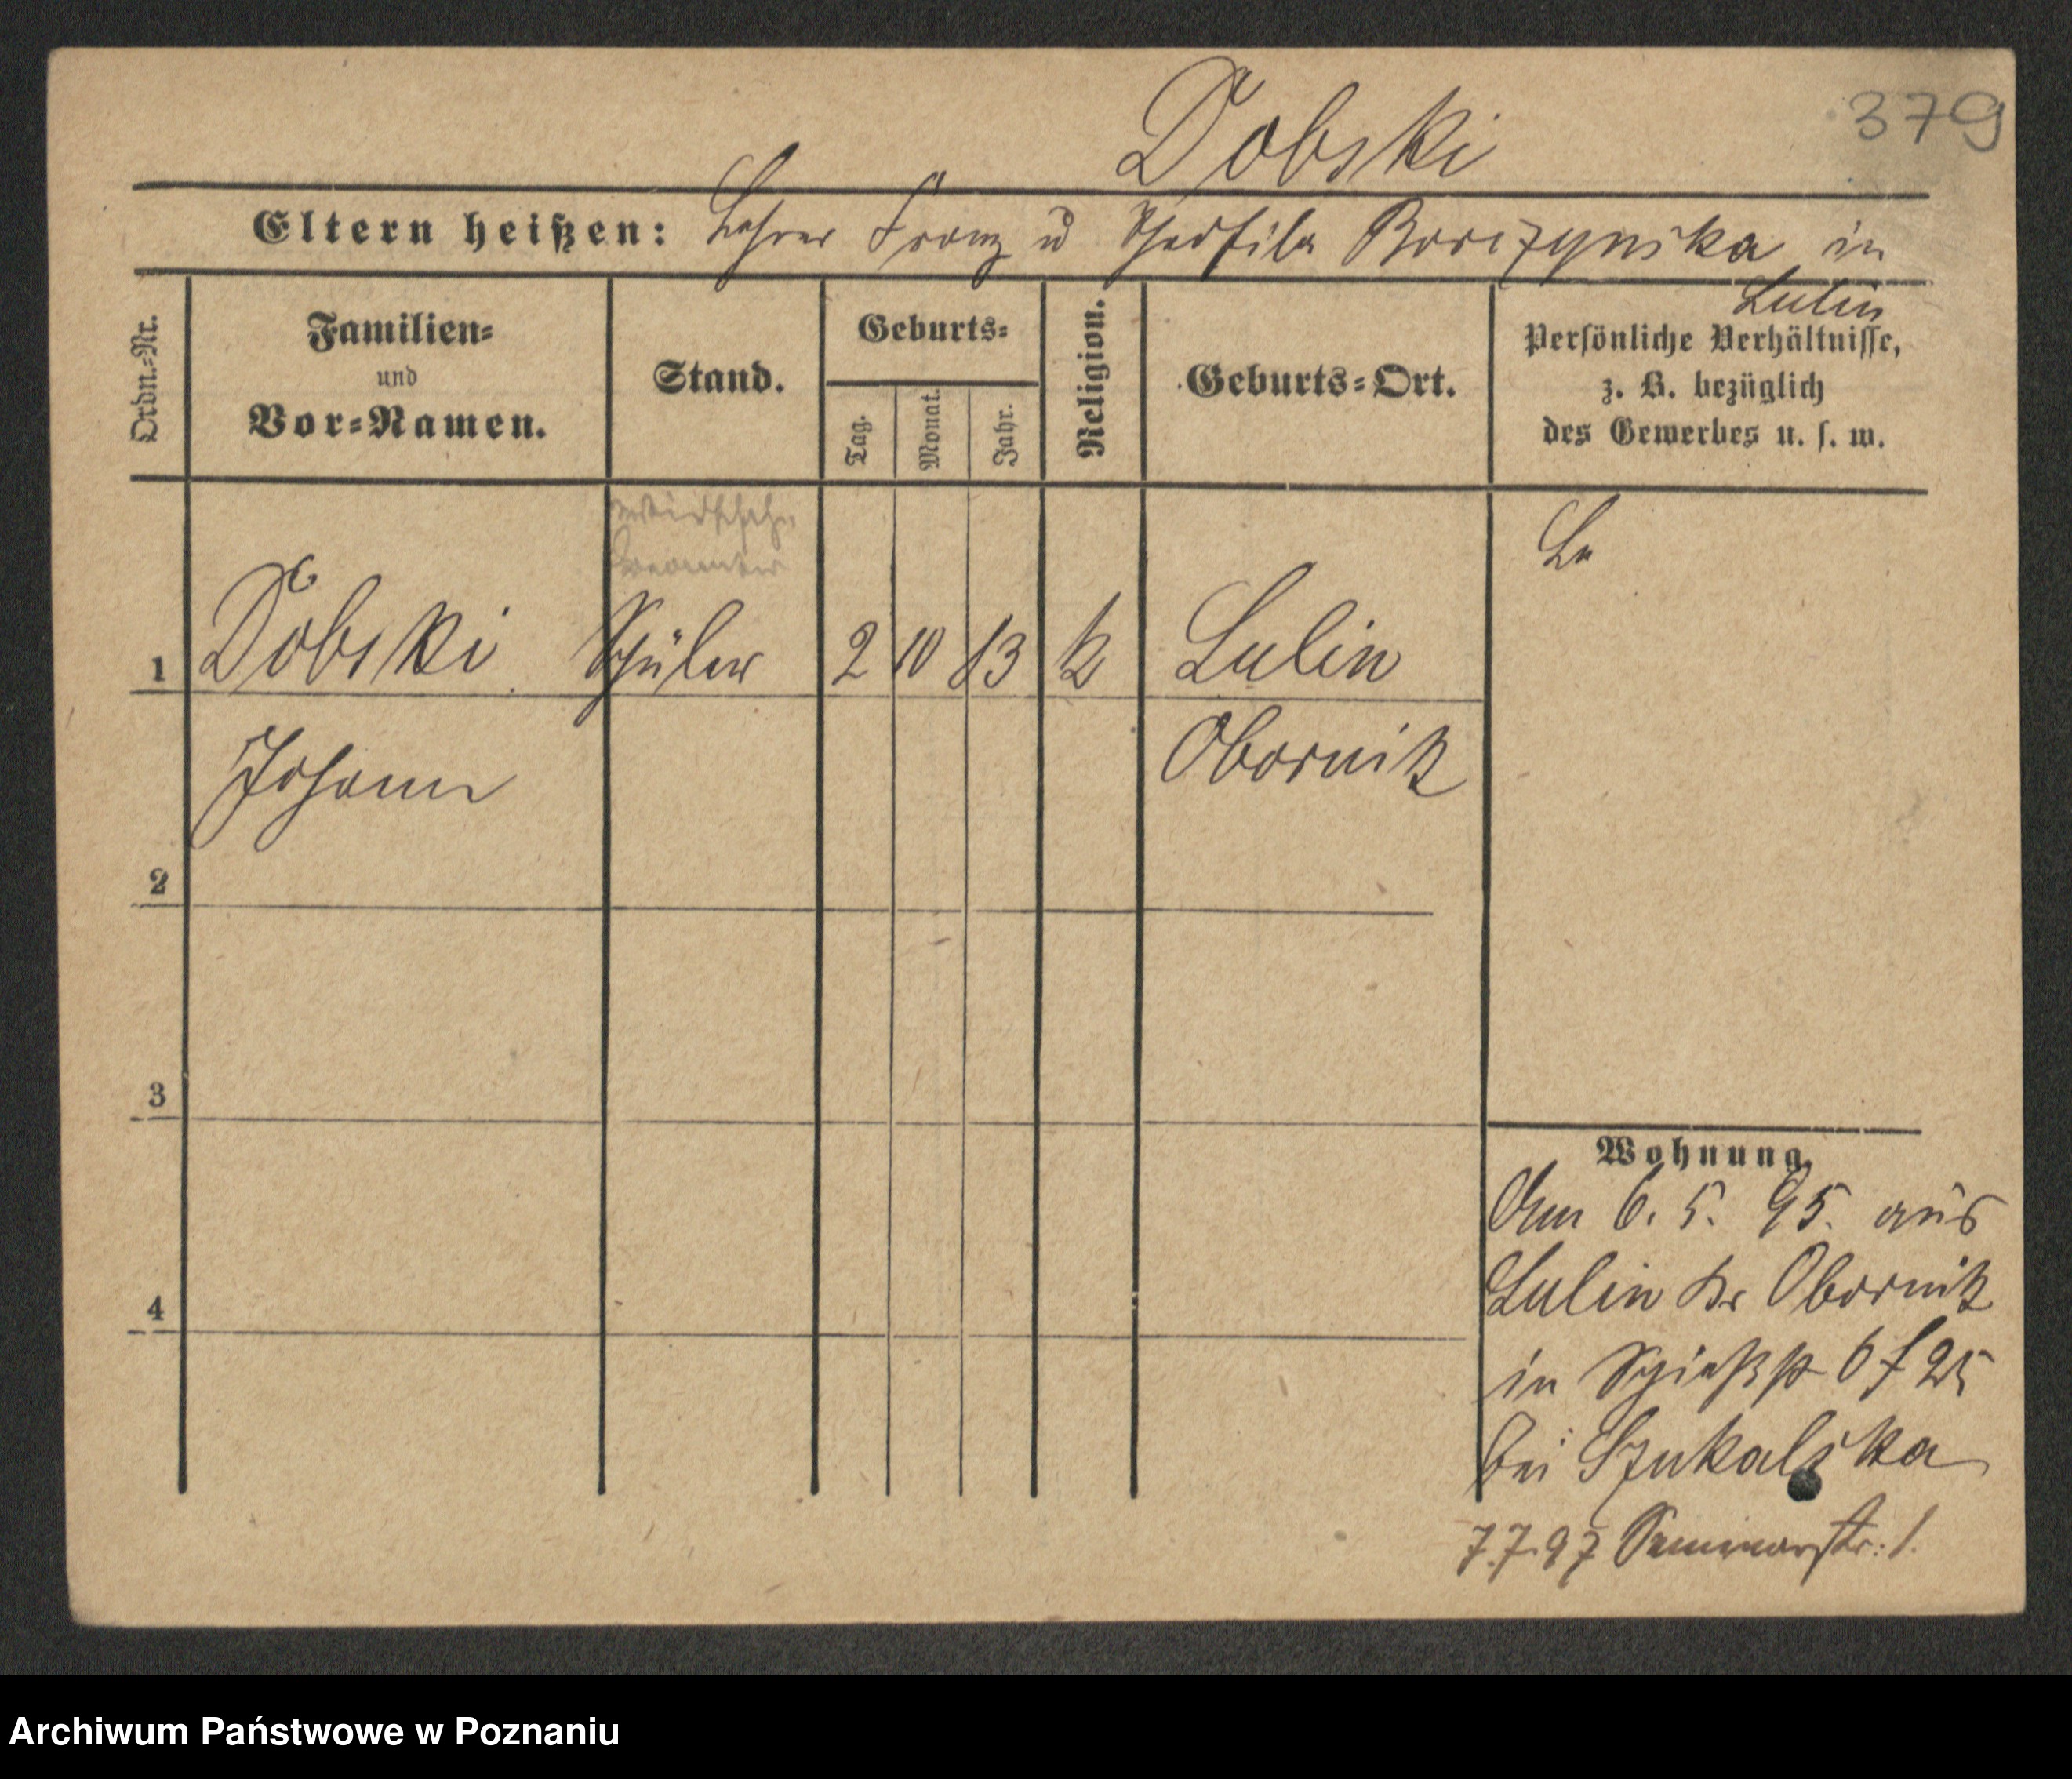 379
Dobski
Eltern heißen: Lehrer Franz u Borczynska in
Lulin
Ordn.-Nr.
Familien-
und
Vor-Namen.
Stand.
Geburts-
Tag.
Monat.
Jahr.
Religion.
Geburts-Ort.
Persönliche Verhältnisse,
z. B. bezüglich
des Gewerbes u. s. w.
1 Dobski Schüler 2 10 k Lulin
Johann Obornik
2
3
4
Wohnung.
6. 5. 95. aus
Lulin Kr Obornik
in
bei Szukalska
7.7.97 Seminarstr. 1.
Archiwum Państwowe w Poznaniu